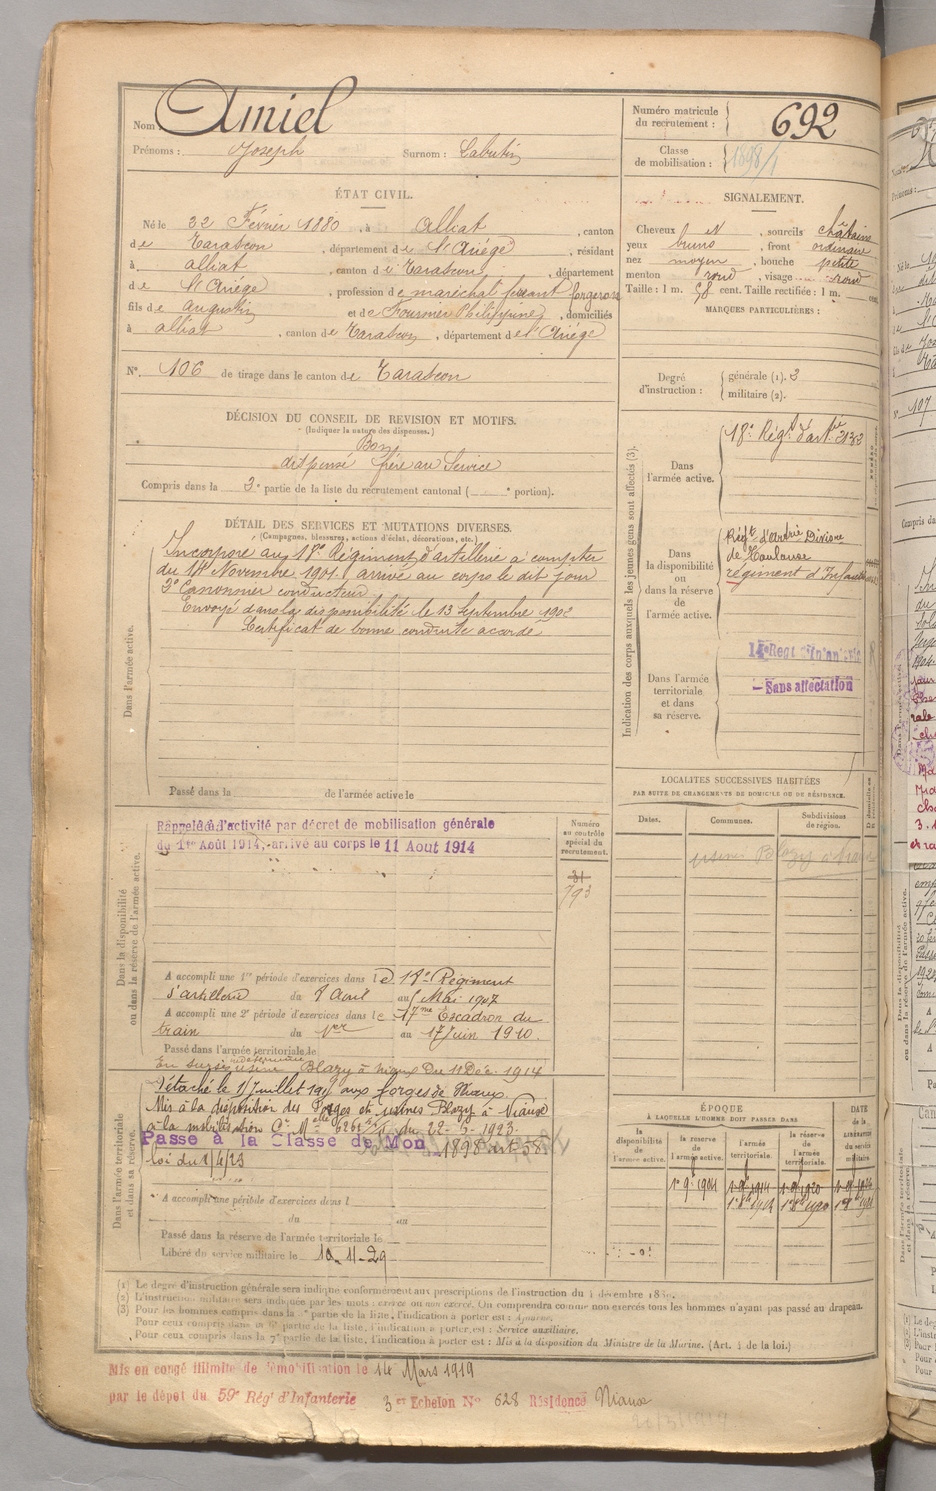 Nom : Amiel
Prénoms : Joseph Surnom :
Numéro matricule du recrutement : 692
Classe de mobilisation : 1898/1
ÉTAT CIVIL.
Né le 22 Février 1880, à Alliat, canton
de Tarascon, département de l'Ariége, résidant
à alliat, canton de Tarascon, département
de l'Ariége, profession de maréchal ferrant forgeron
fils de augustin et de Philippine, domiciliés
à alliat, canton de Tarascon, département de l'Ariége
N° 106 de tirage dans le canton de Tarascon
SIGNALEMENT.
Cheveux et N, sourcils châtains
yeux bruns, front ordinaire
nez moyen, bouche petite
menton rond, visage rond
Taille : 1 m. 58 cent. Taille rectifiée : 1 m. cent.
MARQUES PARTICULIÈRES :
Degré d'instruction : générale (1). 3
militaire (2).
DÉCISION DU CONSEIL DE REVISION ET MOTIFS.
(Indiquer la nature des dispenses.)
Bon
dispensé frère au Service
Compris dans la 3e partie de la liste du recrutement cantonal ( e portion).
DÉTAIL DES SERVICES ET MUTATIONS DIVERSES.
(Campagnes, blessures, actions d'éclat, décorations, etc.)
Dans l'armée active.
Incorporé au 18e Régiment d'artillerie à compter
du 14 Novembre 1901. arrivé au corps le dit jour
2e Canonnier conducteur
Envoyé dans la disponibilité le 13 Septembre 1902
Certificat de bonne conduite accordé
Passé dans la de l'armée active le
Indication des corps auxquels les jeunes gens sont affectés (3).
Dans l'armée active.
18e Régt d'artie 2132
Dans la disponibilité ou dans la réserve de l'armée active.
Régt d'artrie Divisre
de Toulouse
régiment d'Infanterie
Dans l'armée territoriale et dans sa réserve.
14e Regt d'Infanterie
- Sans affectation
LOCALITÉS SUCCESSIVES HABITÉES
PAR SUITE DE CHANGEMENTS DE DOMICILE OU DE RÉSIDENCE.
Dates. Communes. Subdivisions de région.
usines Blazy à Niaux
Dans la disponibilité ou dans la réserve de l'armée active.
Rappelé à l'activité par décret de mobilisation générale
du 1er Août 1914, arrivé au corps le 11 Aout 1914
Numéro au contrôle spécial du recrutement.
31
793
A accompli une 1re période d'exercices dans le 18e Régiment
d'artillerie du 8 Avril au Mai 1907
A accompli une 2e période d'exercices dans le 17me Escadron du
train du 1er au 17 Juin 1910.
Passé dans l'armée territoriale le
En sursis indéterminé usine Blazy à Niaux Du 11 Déc. 1914
Dans l'armée territoriale et dans sa réserve.
Détaché le 1 Juillet 191 aux forges de Niaux
Mis à la disposition des Forges et usines Blazy à Niaux
à la mobilisation du 22-3-1923.
Passé à la Classe de Mon 1898 art 58
loi du 1/4/23
A accompli une période d'exercices dans l
du au
Passé dans la réserve de l'armée territoriale le
Libéré du service militaire le 10-11-29
ÉPOQUE
À LAQUELLE L'HOMME DOIT PASSER DANS
la disponibilité de l'armée active. la réserve de l'armée active. l'armée territoriale. la réserve de l'armée territoriale. DATE de la LIBÉRATION du service militaire.
(1) Le degré d'instruction générale sera indiqué conformément aux prescriptions de l'instruction du 4 décembre 1889.
(2) L'instruction militaire sera indiquée par les mots : exercé ou non exercé. On comprendra comme non exercés tous les hommes n'ayant pas passé au drapeau.
(3) Pour les hommes compris dans la partie de la liste, l'indication à porter est : Ajourné.
Pour ceux compris dans la partie de la liste, l'indication à porter est : Service auxiliaire.
Pour ceux compris dans la 7e partie de la liste, l'indication à porter est : Mis à la disposition du Ministre de la Marine. (Art. 4 de la loi.)
Mis en congé illimité de démobilisation le 14 Mars 1919
par le dépot du 59e Régt d'Infanterie 3er Echelon No 628 Résidence Niaux